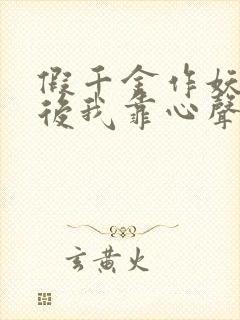 假千金作妖
後我靠心聲
玄黃火